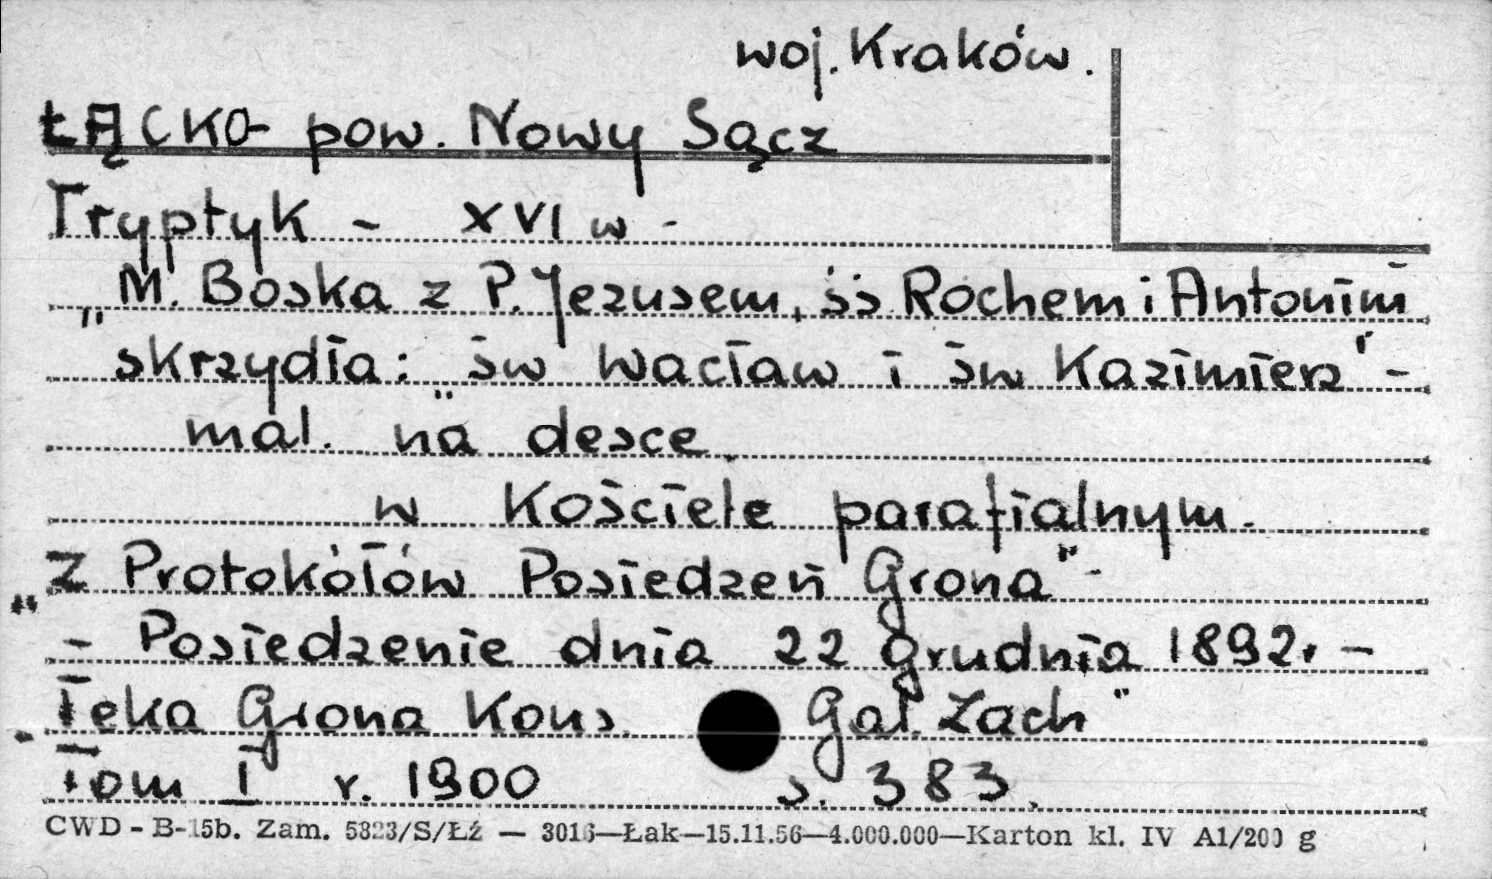 woj. Kraków.
ŁĄCKO- pow. Nowy Sącz
Tryptyk - XVI w -
"M. Boska z P. Jezusem, śś. Rochem i Antonim
skrzydła: św Wacław i św Kazimierz" -
mal. na desce.
w Kościele parafialnym.
"Z Protokółów Posiedzeń Grona" -
- Posiedzenie dnia 22 grudnia 1892r. -
"Teka Grona Kons. Gal. Zach"
Tom I r. 1900 s. 383.
CWD - B-15b. Zam. 5823/S/Łź — 3016—Łak—15.11.56—4.000.000—Karton kl. IV A1/200 g